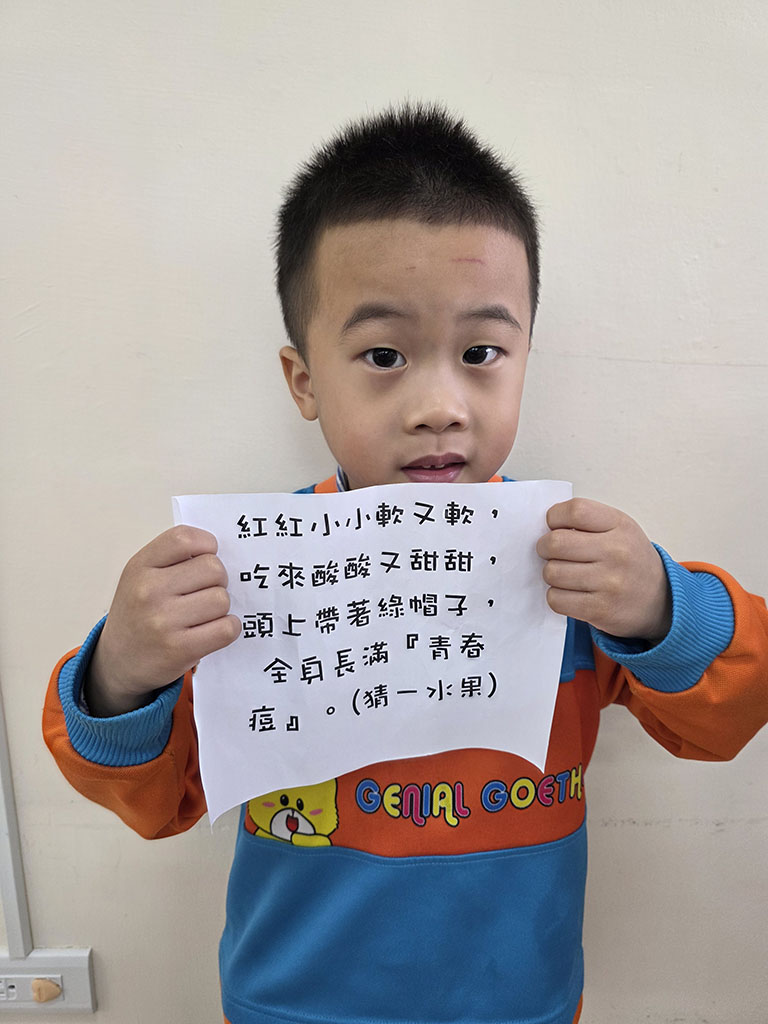 紅紅小小軟又軟，
吃來酸酸又甜甜，
頭上帶著綠帽子，
全身長滿『青春
痘』。(猜一水果)
GENIAL GOETH